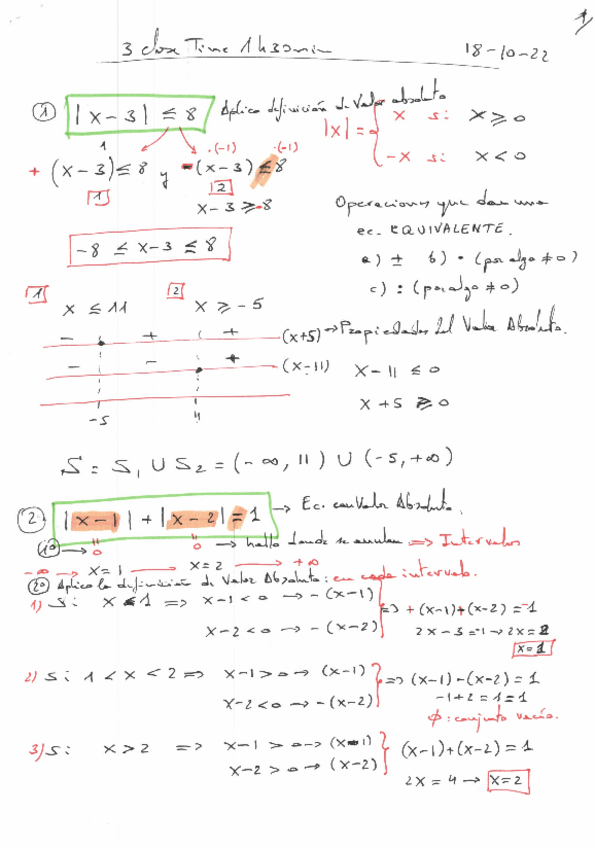 1
3 clase Time 1h30min 18-10-22
① |x-3| ≤ 8 Aplico definición de Valor absoluto
|x| = { x si: x ≥ 0
-x si: x < 0
1 ·(-1) ·(-1)
+ (x-3) ≤ 8 y -(x-3) ≤ 8
1 2
x-3 ≥ -8
Operaciones que dan una
ec. EQUIVALENTE.
-8 ≤ x-3 ≤ 8
a) ± b) · (por algo ≠ 0)
c) : (por algo ≠ 0)
1 x ≤ 11 2 x ≥ -5
- + + (x+5) → Propiedades del Valor Absoluto.
- - + (x-11) x-11 ≤ 0
x+5 ≥ 0
-5 11
S = S₁ ∪ S₂ = (-∞, 11) ∪ (-5, +∞)
② |x-1| + |x-2| = 1 → Ec. con Valor Absoluto.
1º → 0 0 → hallo donde se anulan ⇒ Intervalos
-∞ → x=1 → x=2 → +∞
2º Aplico la definición de Valor Absoluto: en cada intervalo.
1) Si: x < 1 ⇒ x-1 < 0 → -(x-1) ⇒ +(x-1)+(x-2) = -1
x-2 < 0 → -(x-2) 2x-3 = -1 → 2x = 2
x=1
2) Si: 1 < x < 2 ⇒ x-1 > 0 → (x-1) ⇒ (x-1)-(x-2) = 1
x-2 < 0 → -(x-2) -1+2 = 1 = 1
∅: conjunto vacío.
3) Si: x > 2 ⇒ x-1 > 0 → (x-1) (x-1)+(x-2) = 1
x-2 > 0 → (x-2)
2x = 4 → x=2